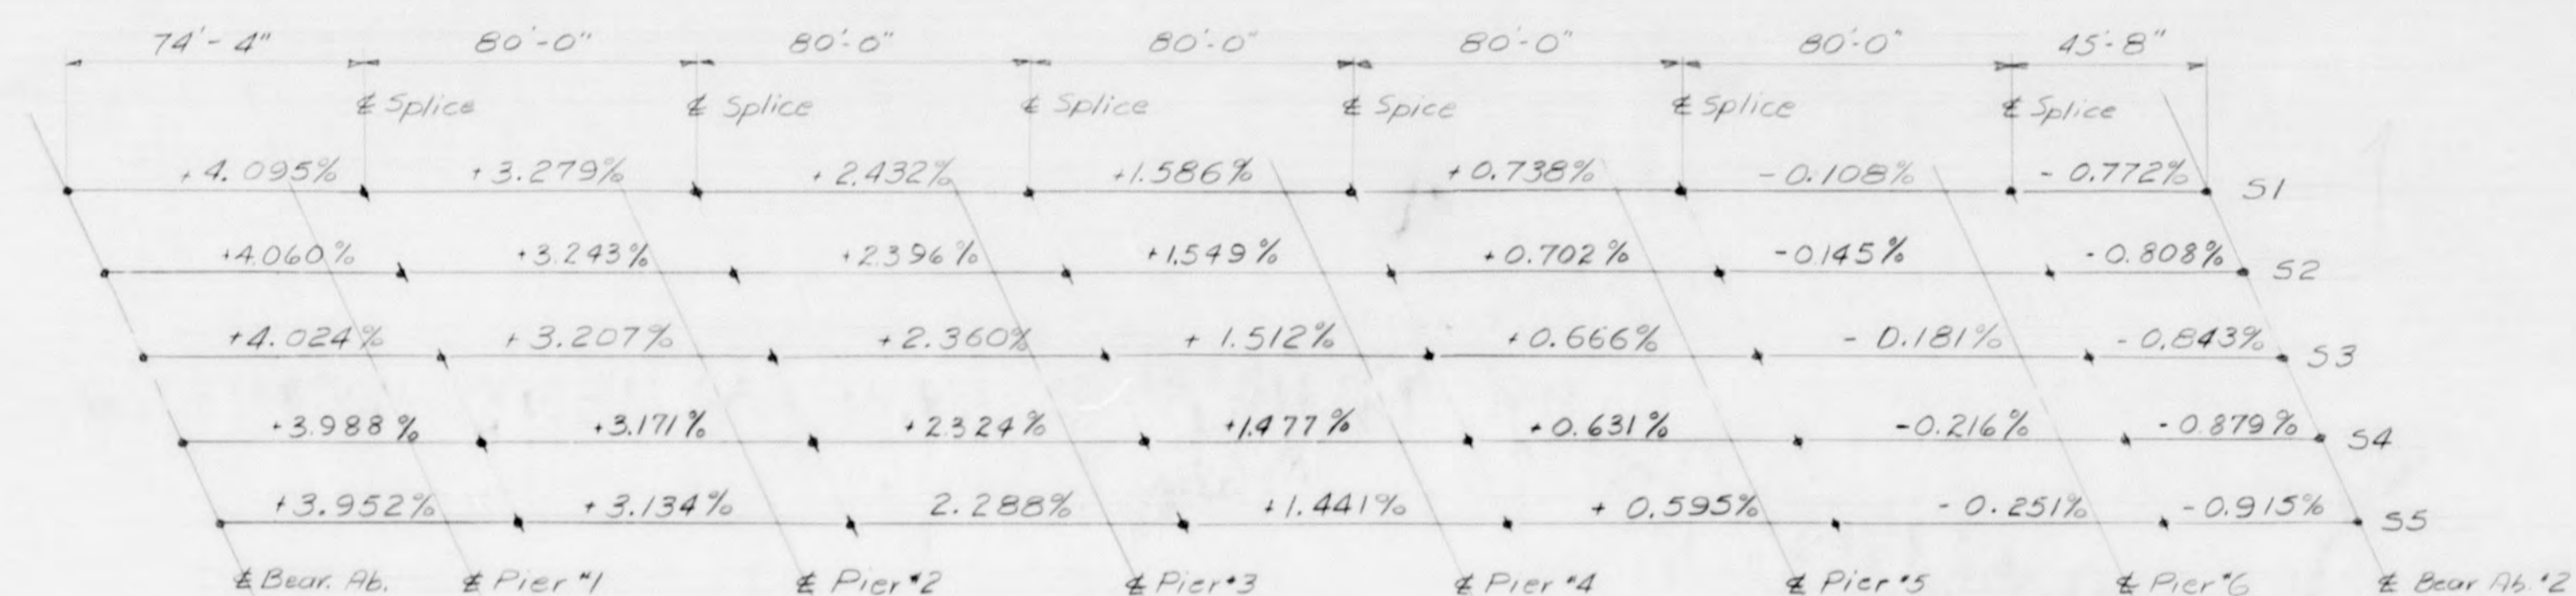 74'-4" 80'-0" 80'-0" 80'-0" 80'-0" 80'-0" 45'-8"
℄ Splice ℄ Splice ℄ Splice ℄ Spice ℄ Splice ℄ Splice
+4.095% +3.279% +2.432% +1.586% +0.738% -0.108% -0.772% S1
+4.060% +3.243% +2.396% +1.549% +0.702% -0.145% -0.808% S2
+4.024% +3.207% +2.360% +1.512% +0.666% -0.181% -0.843% S3
+3.988% +3.171% +2.324% +1.477% +0.631% -0.216% -0.879% S4
+3.952% +3.134% 2.288% +1.441% +0.595% -0.251% -0.915% S5
℄ Bear. Ab. ℄ Pier #1 ℄ Pier #2 ℄ Pier #3 ℄ Pier #4 ℄ Pier #5 ℄ Pier #6 ℄ Bear Ab. #2